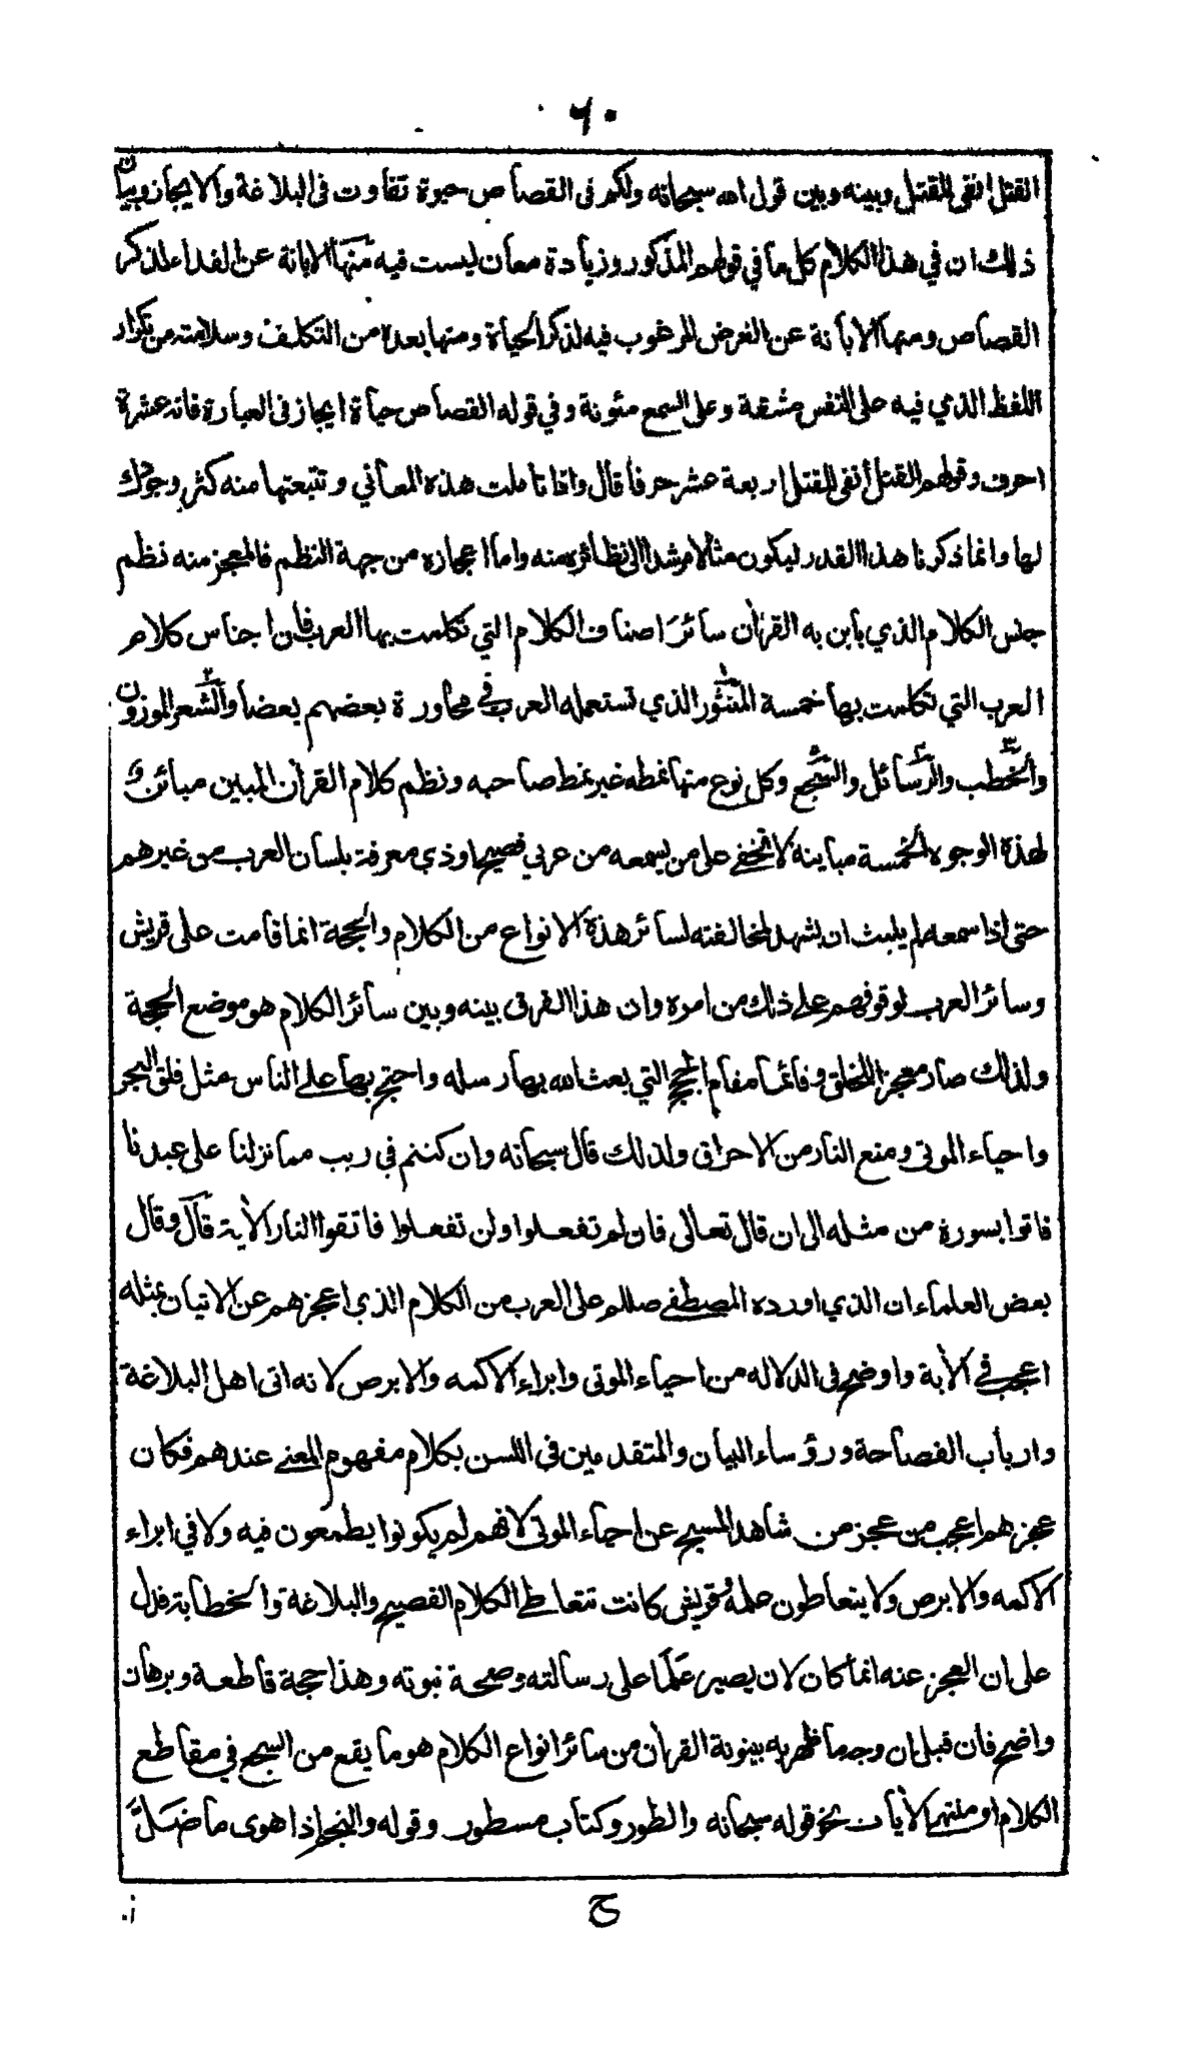 ٦٠
القتل انفى للقتل وبينه وبين قول الله سبحانه ولكم فى القصاص حيوة تفاوت فى البلاغة والايجاز وبيان
ذلك ان في هذا الكلام كل ما في قولهم المذكور وزيادة معان ليست فيه منها الابانة عن الفداء لذكر
القصاص ومنها الابانة عن الغرض المرغوب فيه لذكر الحياة ومنها بعده من التكلف وسلامته من تكرار
اللفظ الذي فيه على النفس مشقة وعلى السمع مئونة وفي قوله القصاص حياة ايجاز فى العبارة فانه عشرة
احرف وقولهم القتل أنفى للقتل اربعة عشر حرفا قال واذا تاملت هذه المعاني وتتبعتها منه كثر وجودك
لها وانما ذكرنا هذا القدر ليكون مثالا مرشدا الى نظائره منه واما اعجازه من جهة النظم فالمعجز منه نظم
جنس الكلام الذي باين به القرأن سائر اصناف الكلام التي تكلمت بها العرب فان اجناس كلام
العرب التي تكلمت بها خمسة المنثور الذي تستعمله العرب في محاورة بعضهم بعضا والشعر الموزون
والخطب والرسائل والسجع وكل نوع منها نمطه غير نمط صاحبه ونظم كلام القرأن المبين مبائن
لهذه الوجوه الخمسة مباينه لا تخفى على من يسمعه من عربي فصيح او ذي معرفة بلسان العرب من غيرهم
حتى اذا سمعه لم يلبث ان يشهد لمخالفته لسائر هذه الانواع من الكلام والحجة انما قامت على قريش
وسائر العرب لوقوفهم على ذلك من امره وان هذا الفرق بينه وبين سائر الكلام هو موضع الحجة
ولذلك صار معجزا للخلق وقائما مقام الحجج التي بعث الله بها رسله واحتج بها على الناس مثل فلق البحر
واحياء الموتى ومنع النار من الاحراق ولذلك قال سبحانه وان كنتم في ريب مما نزلنا على عبدنا
فاتوا بسورة من مثله الى ان قال تعالى فان لم تفعلوا ولن تفعلوا فاتقوا النار الأية قال وقال
بعض العلماء ان الذي اورده المصطفى صللم على العرب من الكلام الذي اعجزهم عن الاتيان بمثله
اعجب في الأية واوضح فى الدلاله من احياء الموتى وابراء الاكمه والابرص لانه اتى اهل البلاغة
وارباب الفصاحة ورؤساء البيان والمتقدمين في اللسن بكلام مفهوم المعنى عندهم فكان
عجزهم اعجب من عجز من شاهد المسيح عن احياء الموتى لانهم لم يكونوا يطمعون فيه ولا في ابراء
الاكمه والابرص ولا يتعاطون علمه وقريش كانت تتعاطى الكلام الفصيح والبلاغة والخطابة فدل
على ان العجز عنه انما كان لان يصير علما على رسالته وصحة نبوته وهذا حجة قاطعة وبرهان
واضح فان قيل ان وجه ما ظهر به بينونة القرأن من سائر انواع الكلام هو ما يقع من السجع في مقاطع
الكلام او منتهى الأيات نحو قوله سبحانه والطور وكتاب مسطور وقوله والنجم اذا هوى ما ضل
ح